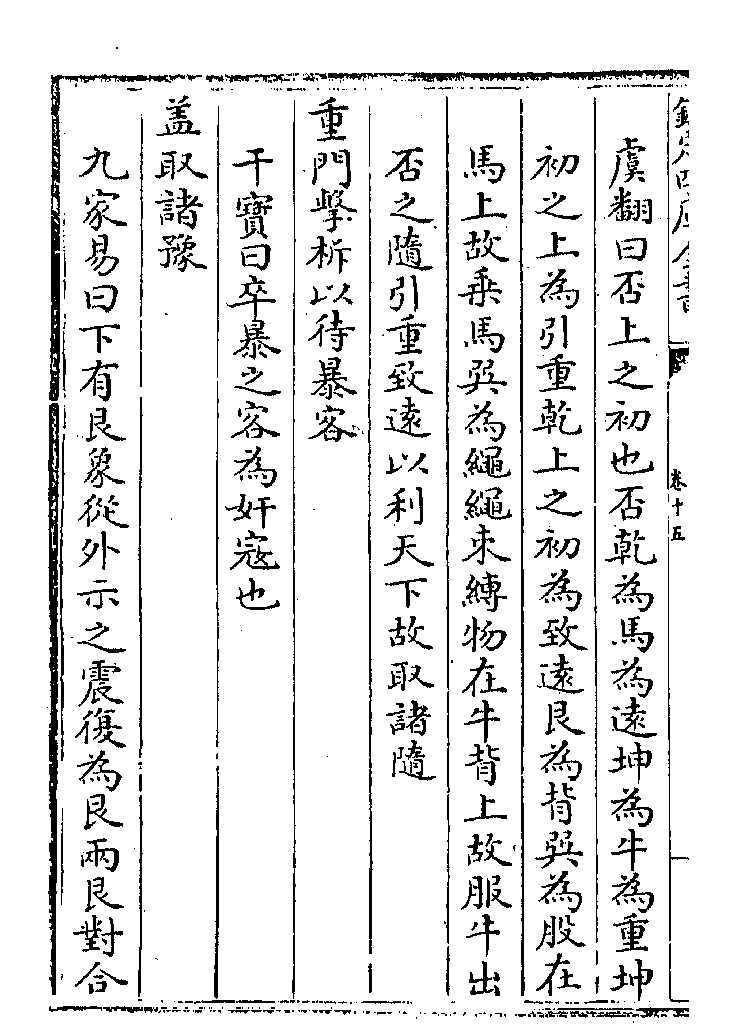 欽定四庫全書
卷十五
虞翻曰否上之初也否乾為馬為遠坤為牛為重坤
初之上為引重乾上之初為致遠艮為背巽為股在
馬上故乗馬巽為繩繩束縛物在牛背上故服牛出
否之隨引重致遠以利天下故取諸隨
重門擊柝以待暴客
干寶曰卒暴之客為奸寇也
盖取諸豫
九家易曰下有艮象從外示之震復為艮兩艮對合